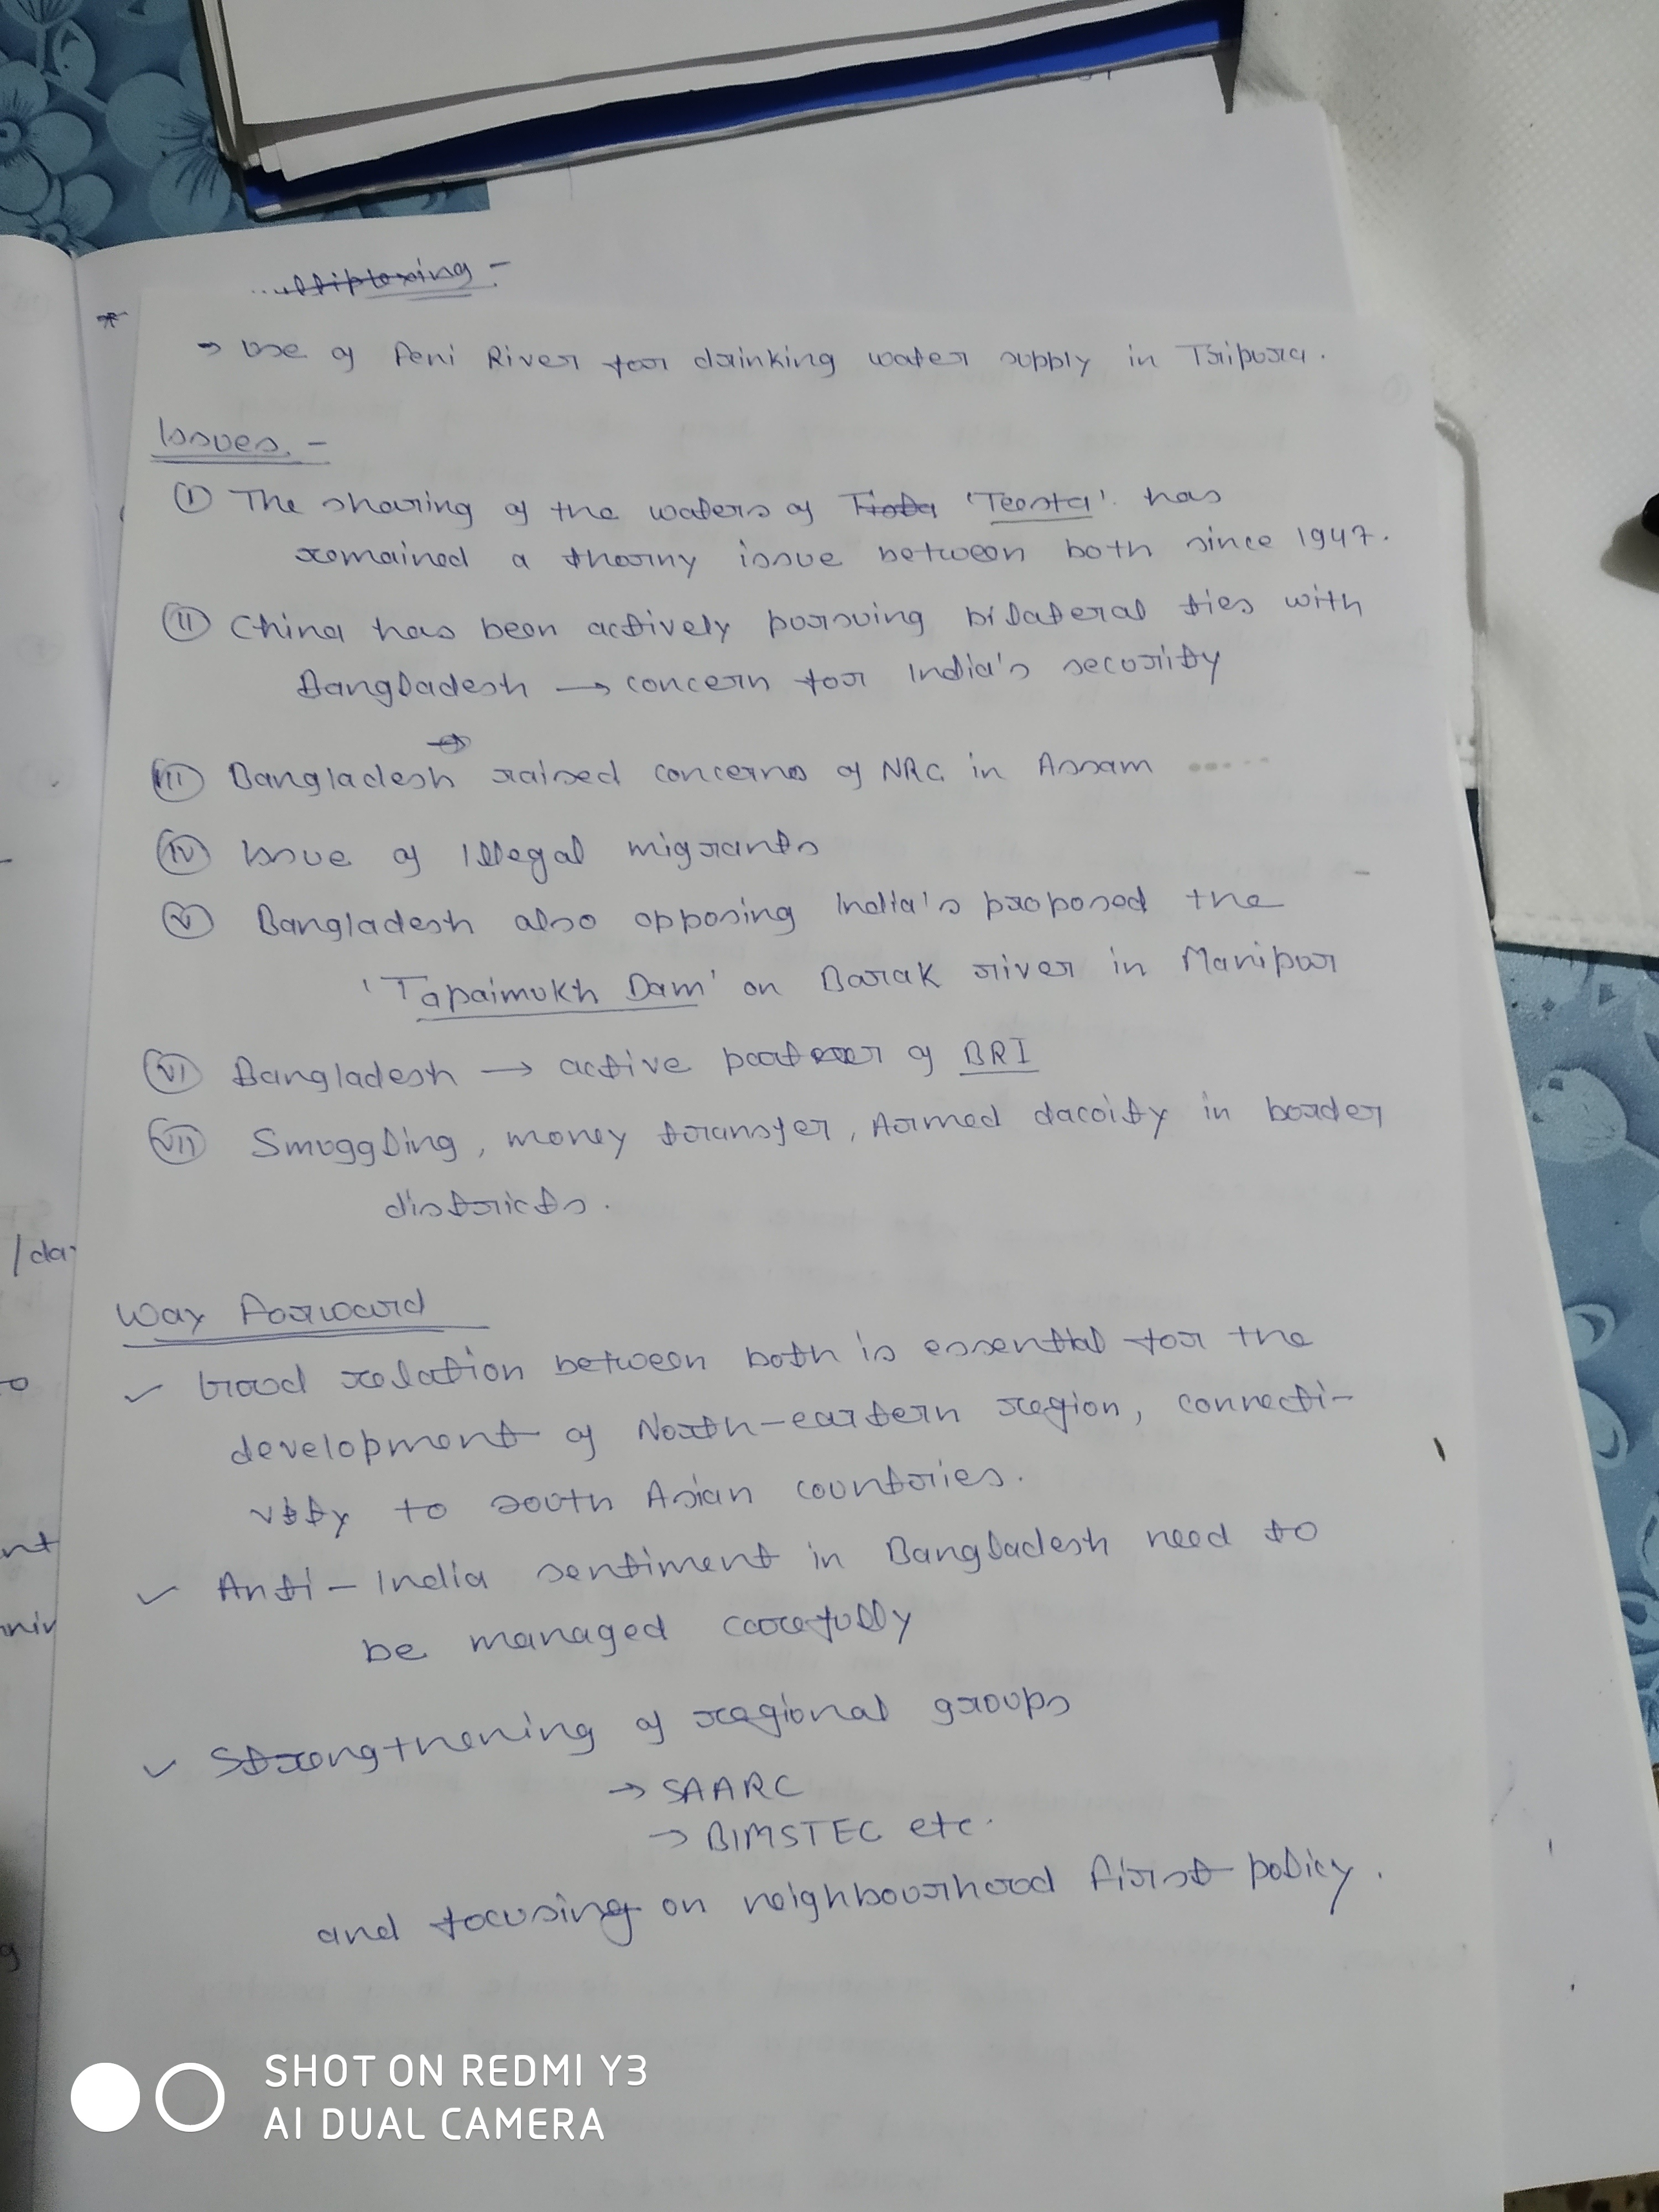 → Use of Feni River for drinking water supply in Tripura.
Issues. -
(I) The sharing of the waters of 'Teesta'. has
remained a thorny issue between both since 1947.
(II) China has been actively pursuing bilateral ties with
Bangladesh → concern for India's security
(III) Bangladesh raised concerns of NRC in Assam .....
(IV) Issue of Illegal migrants
(V) Bangladesh also opposing India's proposed the
'Tapaimukh Dam' on Barak river in Manipur
(VI) Bangladesh → active of BRI
(VII) Smuggling, money transfer, Armed dacoity in border
districts.
Way Forward
✓ Good relation between both is essential for the
development of North-eastern region, connecti-
vity to south Asian countries.
✓ Anti-India sentiment in Bangladesh need to
be managed carefully
✓ Strengthening of regional groups
→ SAARC
→ BIMSTEC etc.
and focusing on neighbourhood first policy.
/da
nt
SHOT ON REDMI Y3
AI DUAL CAMERA